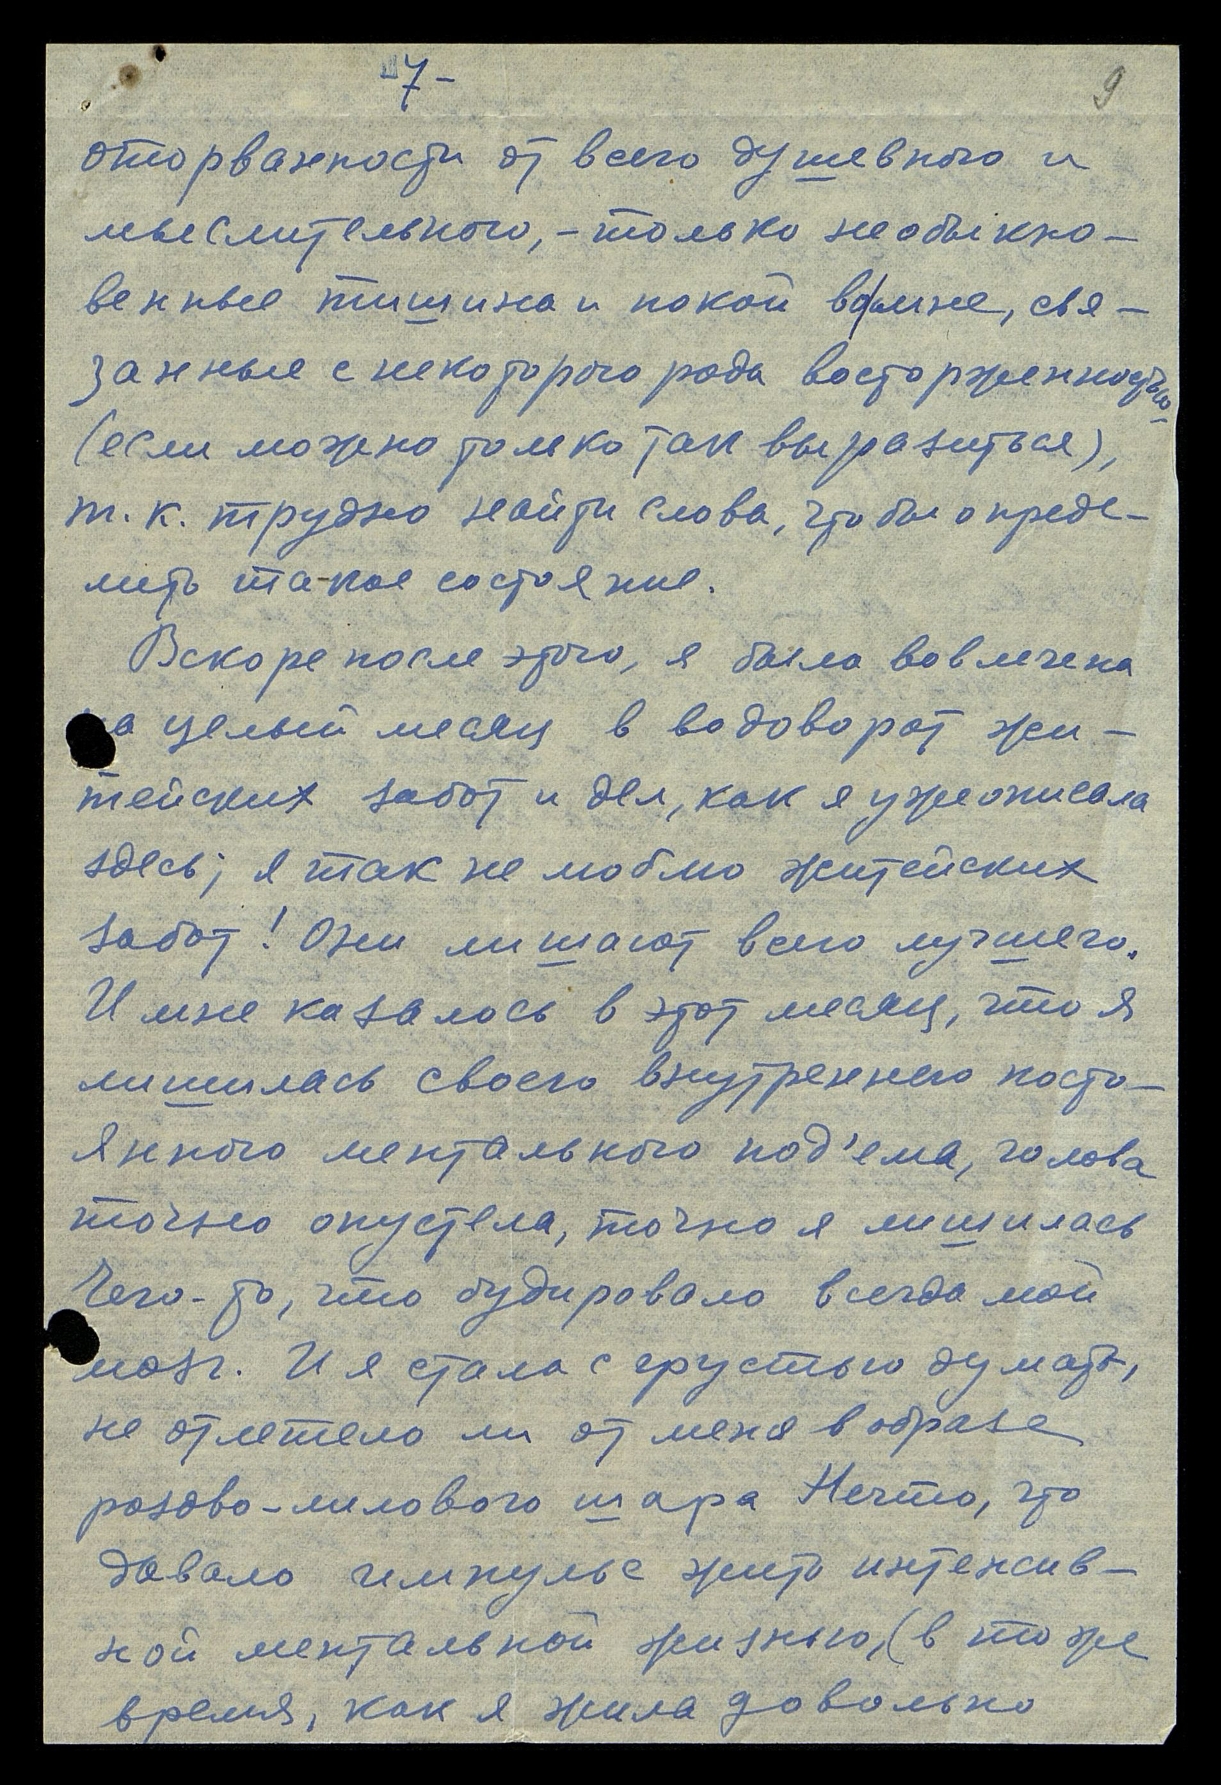 -7-
9
оторванности от всего душевного и
мыслительного, - только необыкно-
венные тишина и покой во мне, свя-
занные с некоторого рода восторженностью
(если можно только так выразиться),
т. к. трудно найти слова, чтобы опреде-
лить такое состояние.
Вскоре после этого, я была вовлечена
на целый месяц в водоворот жи-
тейских забот и дел, как я уже описала
здесь; я так не люблю житейских
забот! Они лишают всего лучшего.
И мне казалось в этот месяц, что я
лишилась своего внутреннего посто-
янного ментального под'ема, голова
точно опустела, точно я лишилась
чего-то, что будировало всегда мой
мозг. И я стала с грустью думать,
не отлетело ли от меня в образе
розово-лилового шара Нечто, что
давало импульс жить интенсив-
ной ментальной жизнью, (в то же
время, как я жила довольно